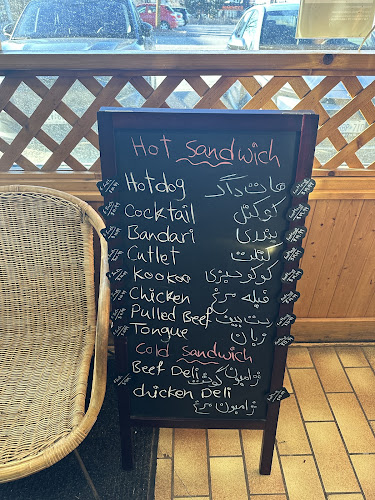 Hot Sandwich
Hotdog هات داگ
Cocktail کوکتل
Bandari بندری
Cutlet کتلت
Kookoo کوکو سبزی
Chicken فیله مرغ
Pulled Beef رست بیف
Tongue زبان
Cold Sandwich
Beef Deli ژامبون گوشت
chicken Deli ژامبون مرغ